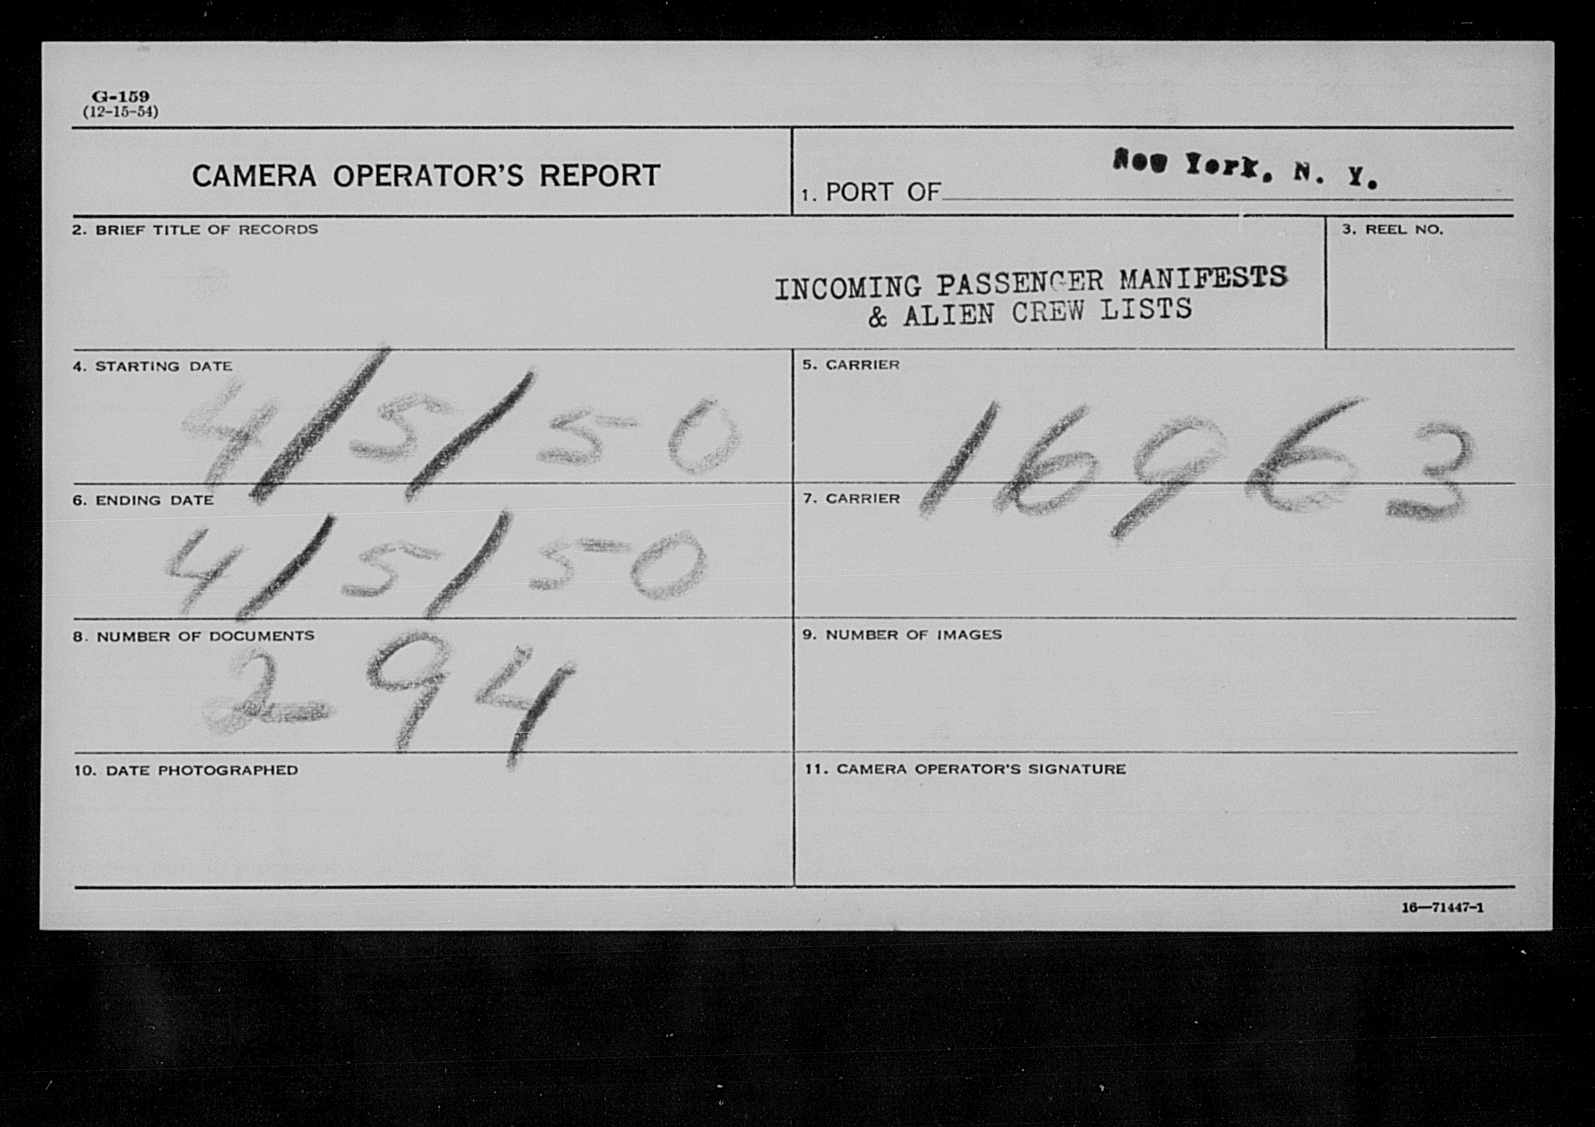 G-159
(12-15-54)
CAMERA OPERATOR'S REPORT
1. PORT OF New York, N. Y.
2. BRIEF TITLE OF RECORDS
INCOMING PASSENGER MANIFESTS
& ALIEN CREW LISTS
3. REEL NO.
4. STARTING DATE
4/5/50
5. CARRIER
16963
6. ENDING DATE
4/5/50
7. CARRIER
8. NUMBER OF DOCUMENTS
294
9. NUMBER OF IMAGES
10. DATE PHOTOGRAPHED
11. CAMERA OPERATOR'S SIGNATURE
16—71447-1